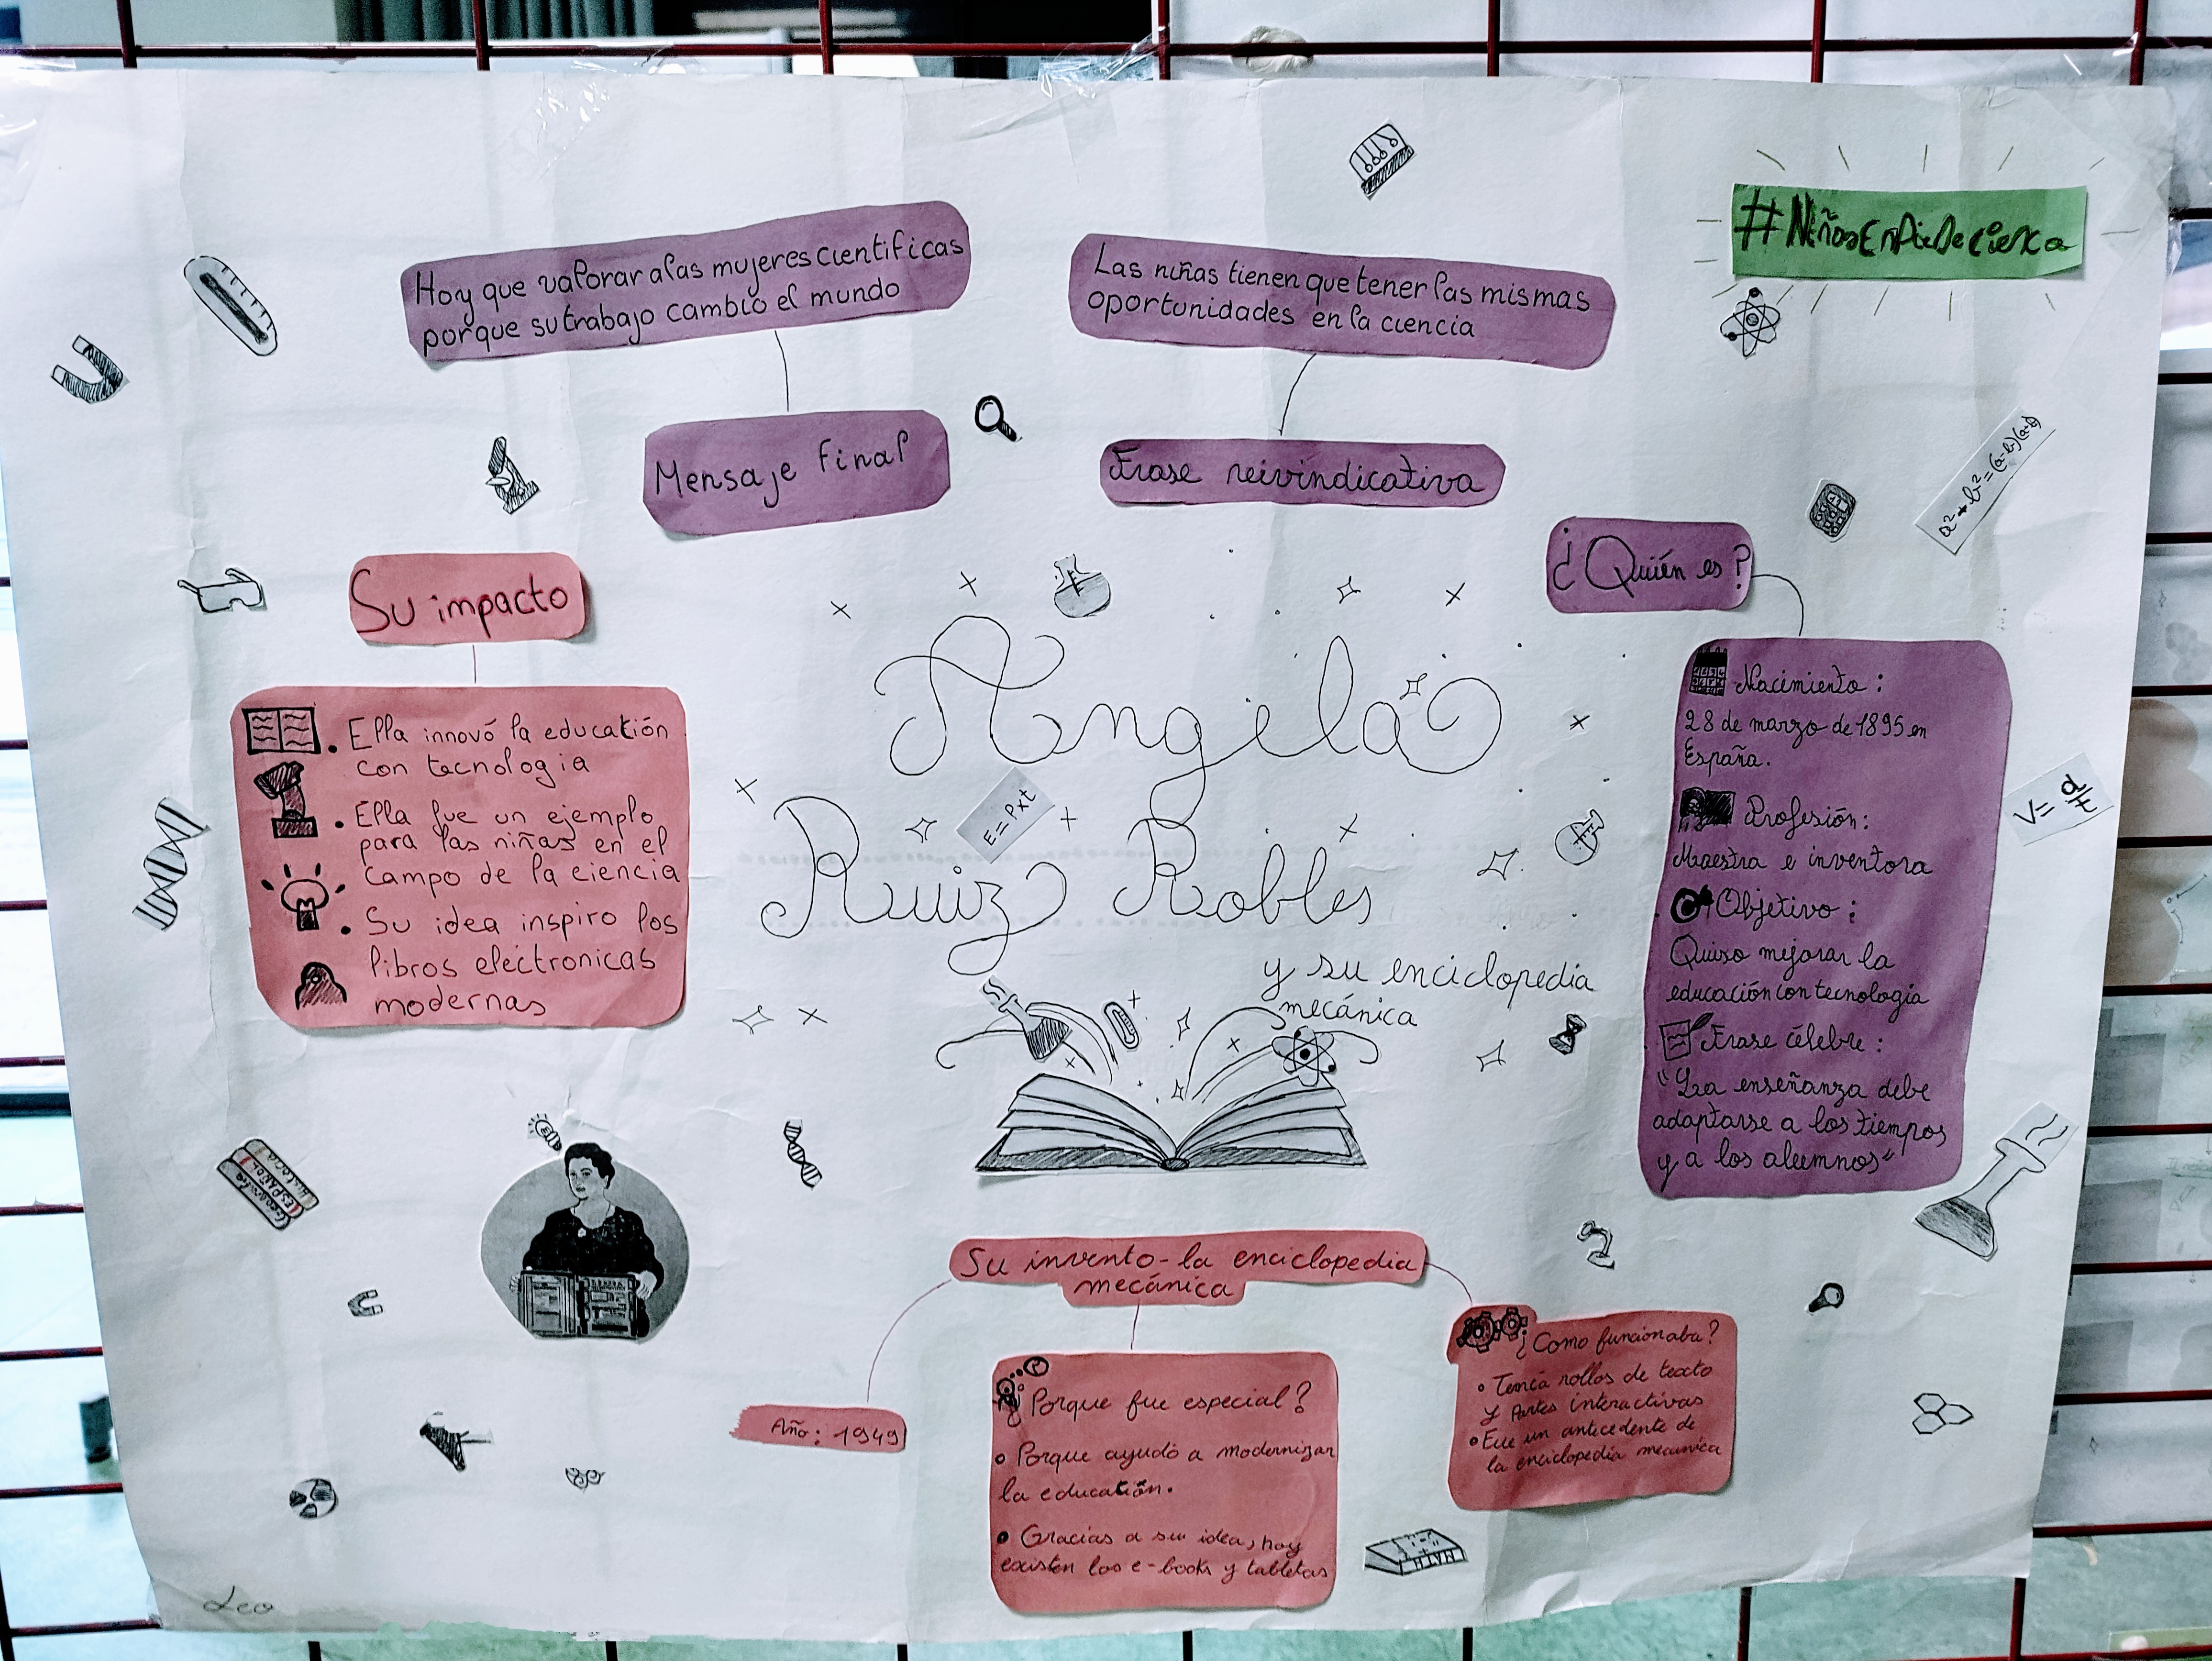 #NiñasEnPieDeCienca
Hoy que valorar a las mujeres cientificas
porque su trabajo cambio el mundo
Mensaje final
Las niñas tienen que tener las mismas
oportunidades en la ciencia
Frase reivindicativa
¿Quién es?
Nacimiento:
28 de marzo de 1895 en
España.
Profesión:
Maestra e inventora
Objetivo:
Quiso mejorar la
educación con tecnología
Frase célebre:
"La enseñanza debe
adaptarse a los tiempos
y a los alumnos"
Su impacto
• Ella innovó la educatión
con tecnologia
• Ella fue un ejemplo
para las niñas en el
campo de la ciencia
• Su idea inspiro los
libros electronicas
modernas
Angela
Ruiz Robles
y su enciclopedia
mecánica
E=Pxt
V= d/t
Historia
ESPAÑOL
Su invento-la enciclopedia
mecánica
Año: 1949
¿Porque fue especial?
• Porque ayudó a modernizar
la educatión.
• Gracias a su idea, hoy
existen los e-books y tabletas
¿Como funcionaba?
• Tenía rollos de texto
y Partes interactivas
• Fue un antecedente de
la enciclopedia mecanica
MATH
Leo